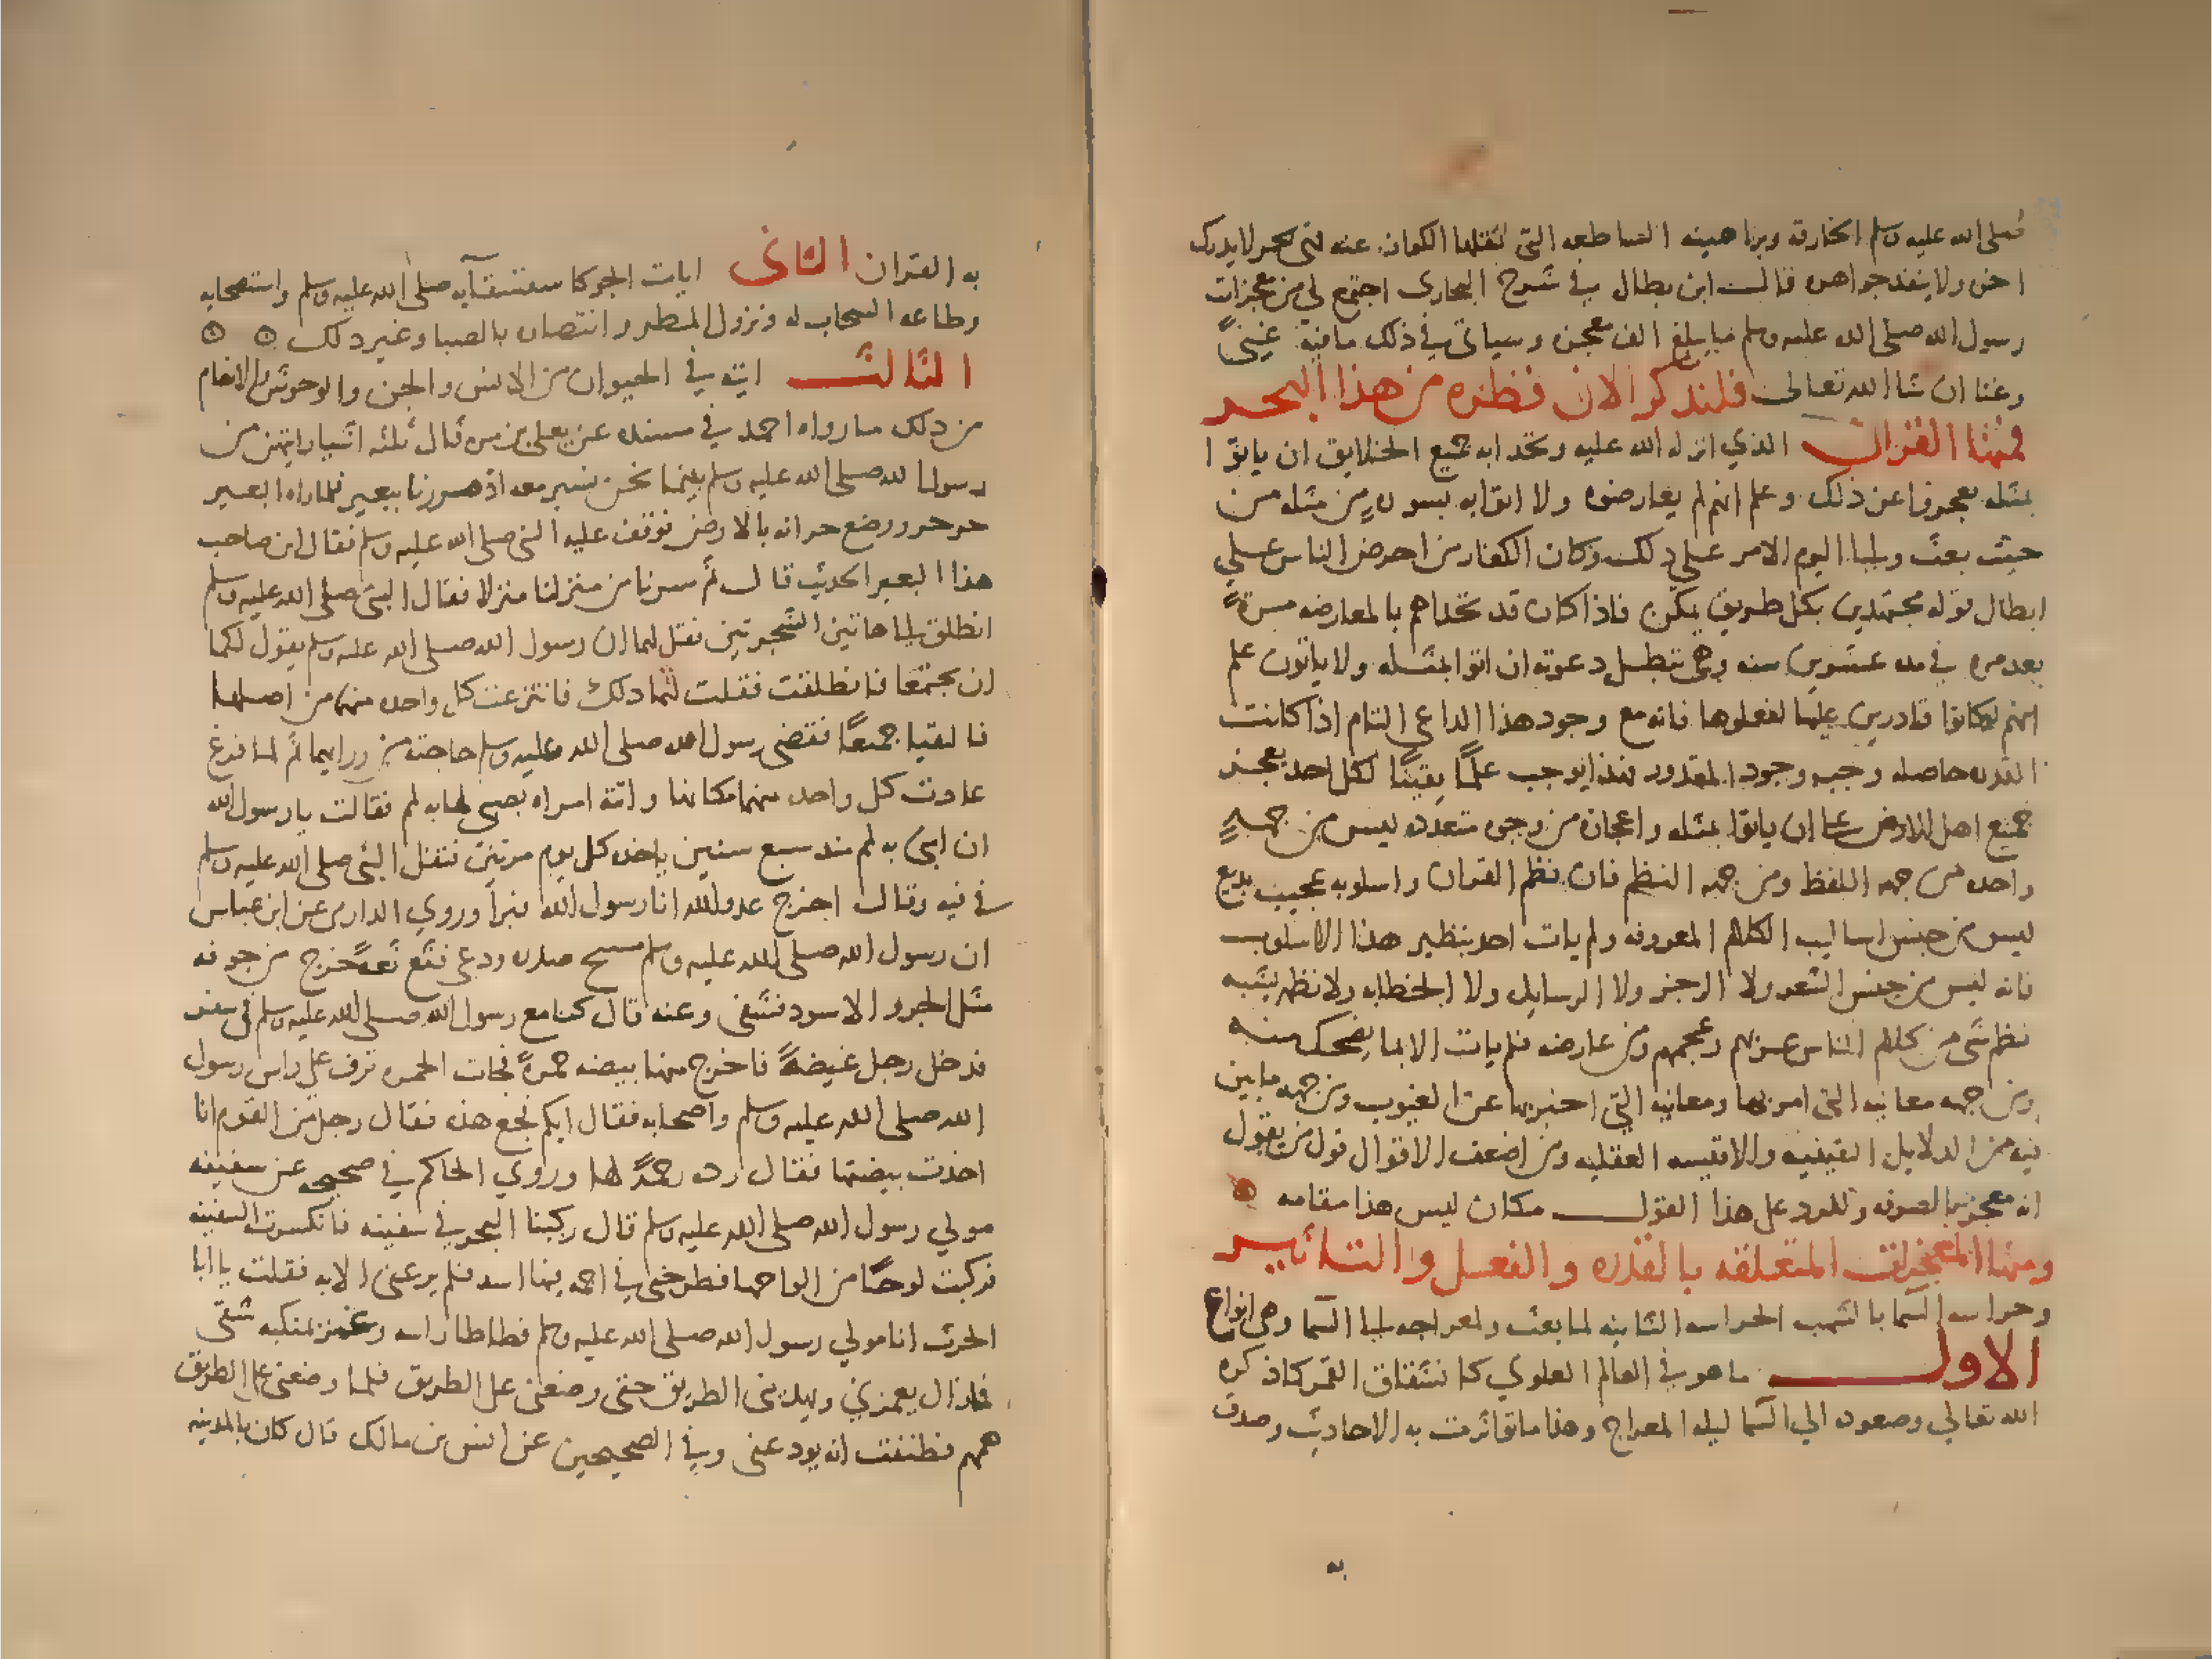 صلى الله عليه وسلم الخارقه وبراهينه الساطعه التى نقلها الكفاة عنه فهى بحر لا يدرك
اخره ولا ينفد جواهره قالـــ ابن بطال في شرح البخاري اجتمع لى من معجزات
رسول الله صلى الله عليه وسلم ما يبلغ الف معجزه وسياتى في ذلك ما فيه غنيةً
وغنا ان شا الله تعالى فلنذكر الان قطره من هذا البحـر
فمنها القرانــ الذي انزله الله عليه وتحدا به جميع الخلايق ان ياتوا
بمثله فعجزوا عن ذلك وعلم انهم لم يعارضوه ولا اتوا به بسوره من مثله من
حيث بعث والى اليوم الامر على ذلك وكان الكفار من احرض الناس على
ابطال قوله مجتهدين بكل طريق يمكن فاذا كان قد تحداهم بالمعارضه مرةً
بعد مره في مده عشرين سنه وهى تبطل دعوته ان اتوا بمثله ولا ياتون علم
انهم لو كانوا قادرين عليها لفعلوها فانه مع وجود هذا الداعى التام اذا كانت
القدره حاصله وجب وجود المقدور فهذا يوجب علمًا يقينًا لكل احد بعجز
جميع اهل الارض على ان ياتوا بمثله واعجازه من وجوه متعدده ليس من جهةٍ
واحده من جهه اللفظ ومن جهه النظم فان نظم القران واسلوبه عجيب بديع
ليس من جنس اساليب الكلام المعروفه ولم يات احد بنظير هذا الاسلوب
فانه ليس من جنس الشعر ولا الرجز ولا الرسايل ولا الخطابه ولا نظمه يشبه
نظم شى من كلام الناس عربهم وعجمهم ومن عارضه فلم يات الا بما يضحك منه
ومن جهه معانيه التى امر بها ومعانيه التي اخبر بها عن الغيوب ومن جهه ما بين
فيه من الدلايل اليقينيه والاقيسه العقليه ومن اضعف الاقوال قول من يقول
انه معجز بالصرفه وللرد على هذا القولــ مكان ليس هذا مقامه
ومنها المعجزات المتعلقه بالقدره والفعل والتاثير
وحراسه السما بالشهب الحراسه الثانيه لما بعث ولمعراجه الى السما وهى انواع
الاولــ ما هو في العالم العلوي كانشقاق القمر كما ذكره
الله تعالي وصعوده الي السما ليله المعراج وهذا ما تواترت به الاحاديث وصدق
به
به القران الثانى ايات الجو كاستسقآيه صلى الله عليه وسلم واستصحايه
وطاعه السحاب له ونزول المطر وانتصاره بالصبا وغير ذلك
الثالثــ ايته في الحيوان من الانس والجن والوحوش والانعام
من ذلك ما رواه احمد في مسنده عن يعلى بن مره قال ثلثه اشيا رايتهن من
رسول الله صلى الله عليه وسلم بينما نحن نسير معه اذ مررنا ببعير فلما راه البعير
جرجر ووضع جرانه بالارض فوقف عليه النبى صلى الله عليه وسلم فقال اين صاحب
هذا البعير الحديث قالــ ثم سرنا من منزلنا منزلا فقال النبى صلى الله عليه وسلم
انطلق الى هاتين الشجرتين فقل لهما ان رسول الله صلى الله عليه وسلم يقول لكما
ان تجتمعا فانطلقت فقلت لهما ذلك فانتزعت كل واحده منهما من اصلها
فالتقيا جميعًا فقضى رسول الله صلى الله عليه وسلم حاجته من ورايهما ثم لما فرغ
عادت كل واحده منهما مكانها واتته امراه بصبى لها به لمم فقالت يا رسول الله
ان ابنى به لمم منذ سبع سنين ياخذه كل يوم مرتين فتفل النبى صلى الله عليه وسلم
في فيه وقالــ اخرج عدو الله انا رسول الله فبرا وروي الدارمى عن ابن عباس
ان رسول الله صلى الله عليه وسلم مسح صدره ودعى فثع ثعةً خرج من جوفه
مثل الجرو الاسود فشفى وعنه قال كنا مع رسول الله صلى الله عليه وسلم في سفر
فدخل رجل غيضةً فاخرج منها بيضه حمرةً فجات الحمره ترف على راس رسول
الله صلى الله عليه وسلم واصحابه فقال ايكم فجع هذه فقال رجل من القوم انا
اخذت بيضتها فقال رده رحمةً لها وروي الحاكم في صحيحه عن سفينه
مولي رسول الله صلى الله عليه وسلم قال ركبنا البحر في سفينه فانكسرت السفينه
فركبت لوحًا من الواحها فطرحنى في اجمه فيها اسد فلم يرعنى الا به فقلت يا ابا
الحرث انا مولي رسول الله صلى الله عليه وسلم فطاطا راسه وغمز بمنكبه شقى
فما زال يغمزني ويهدينى الطريق حتى وضعنى على الطريق فلما وضعنى على الطريق
همهم فظننت انه يودعنى وفي الصحيحين عن انس بن مالك قال كان بالمدينه